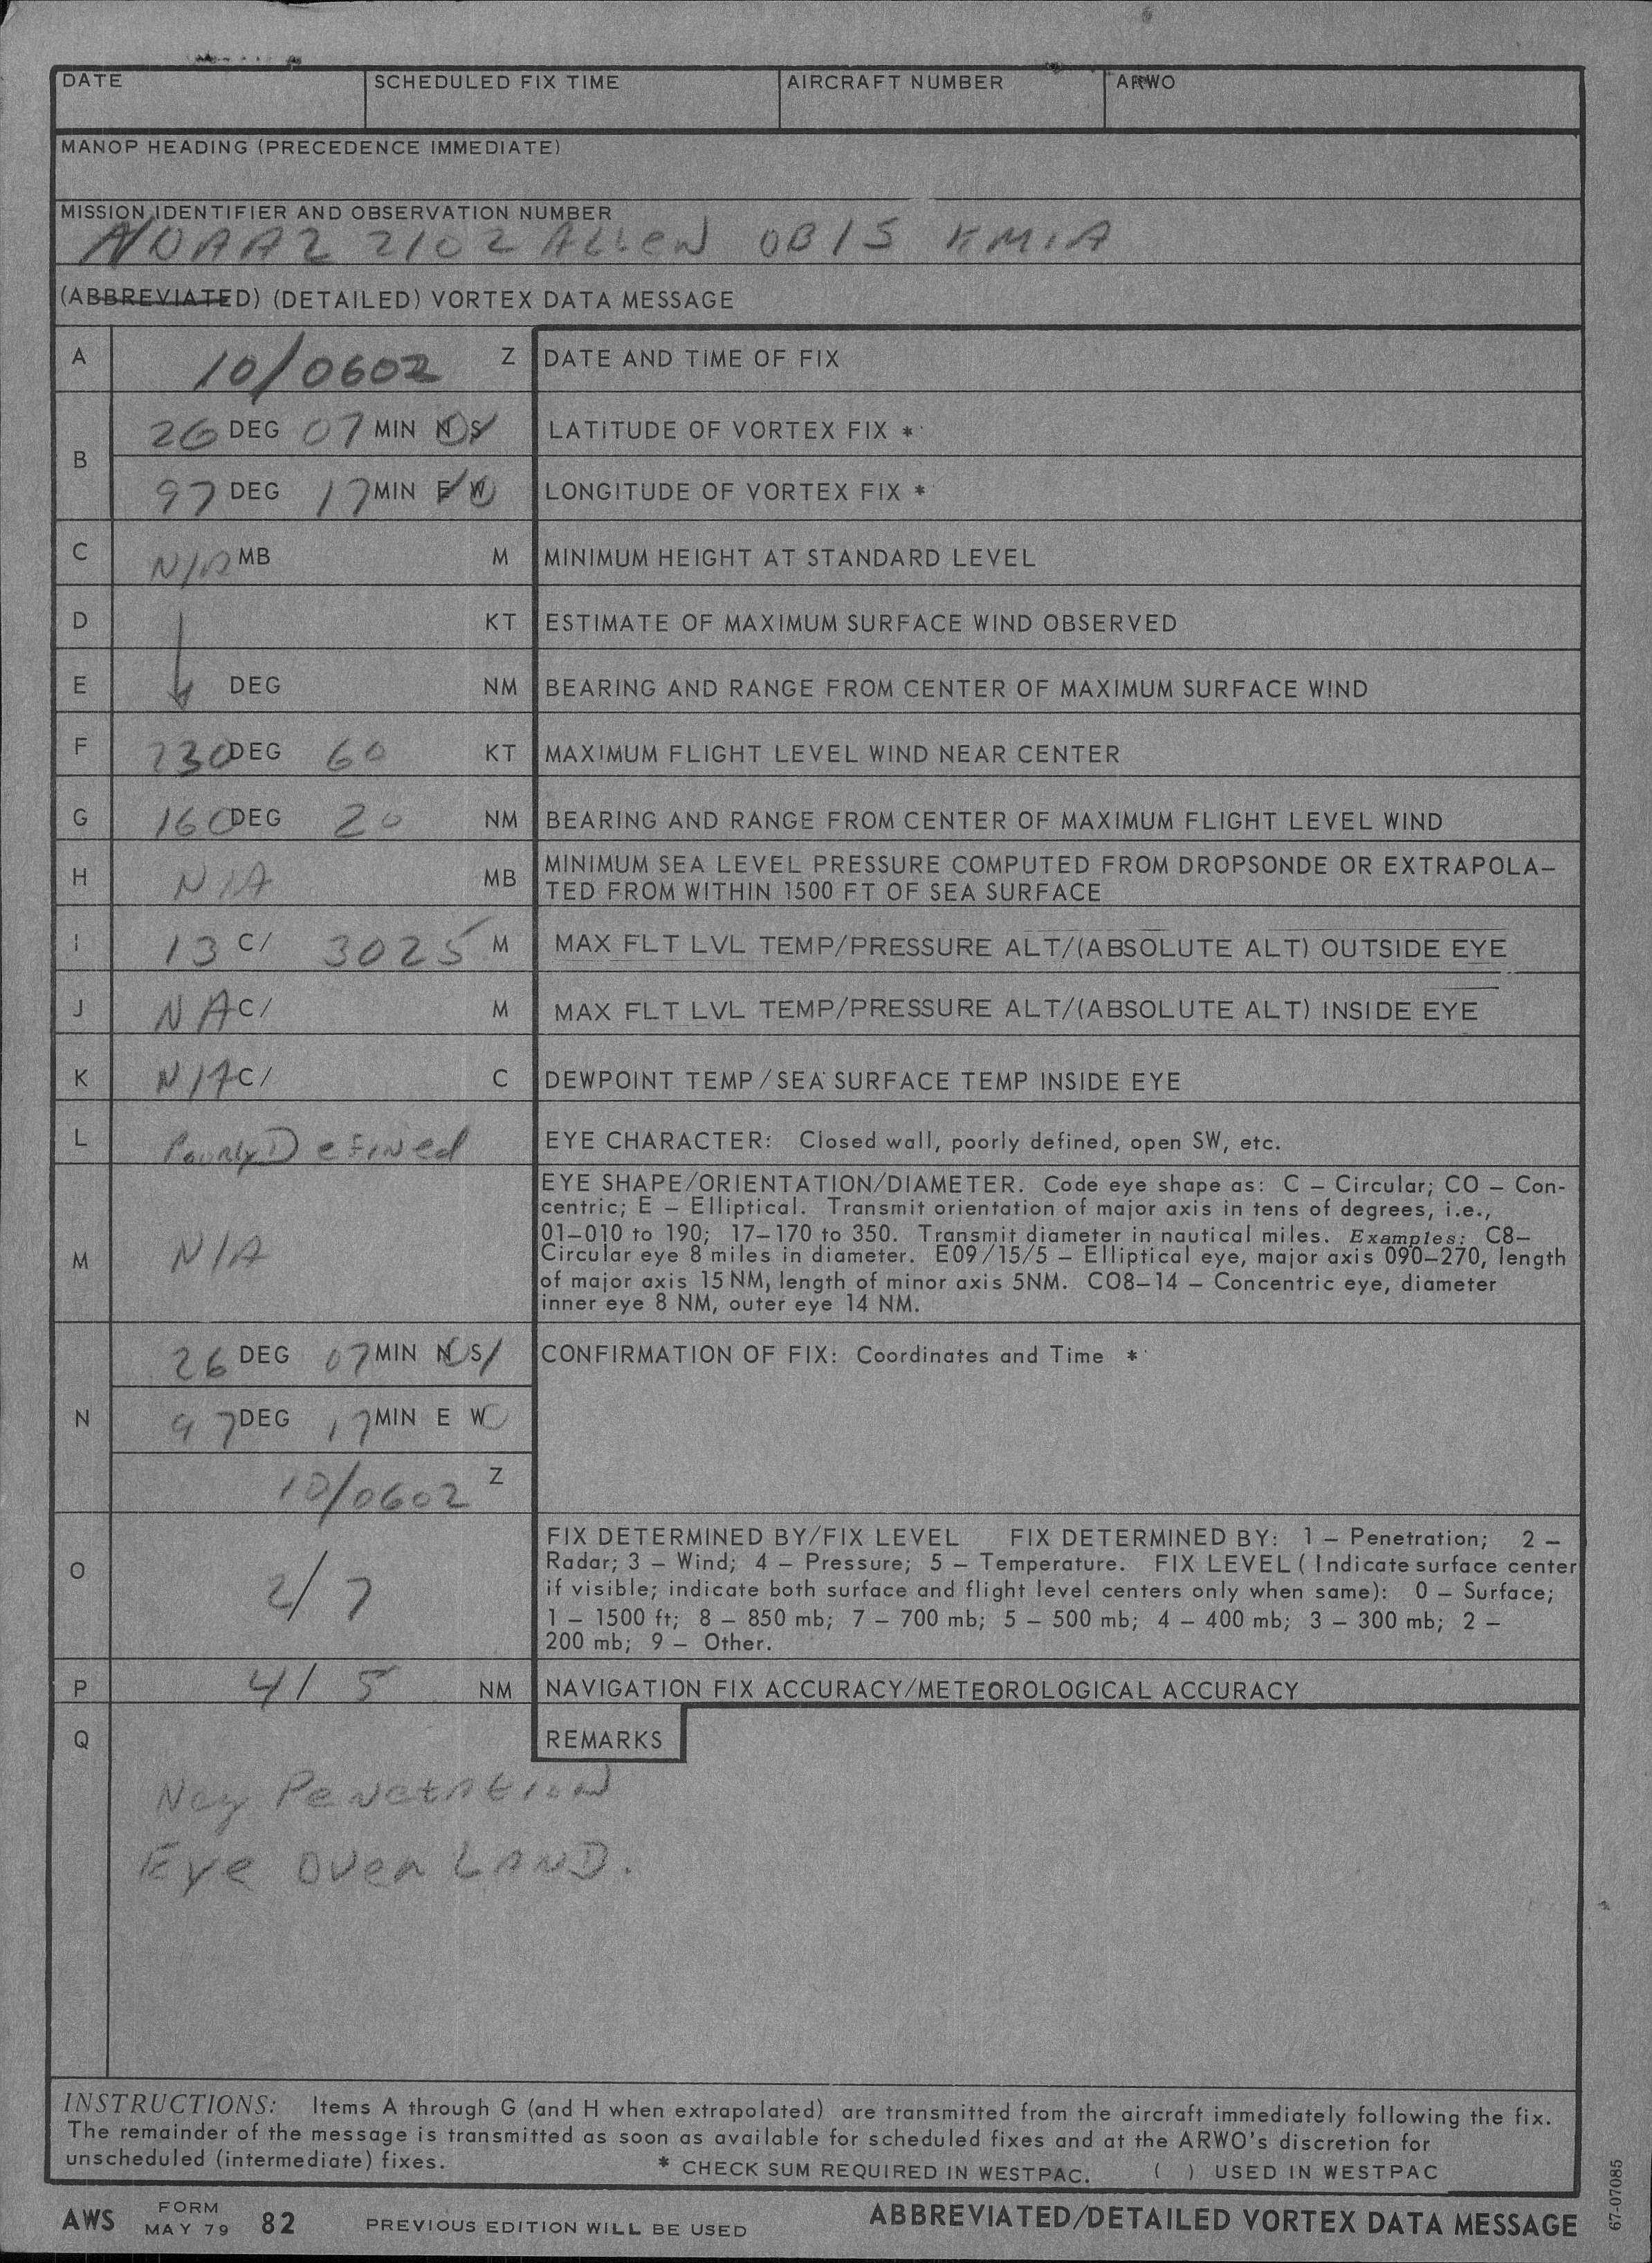 DATE SCHEDULED FIX TIME AIRCRAFT NUMBER ARWO
MANOP HEADING (PRECEDENCE IMMEDIATE)
MISSION IDENTIFIER AND OBSERVATION NUMBER
NOAA2 2102 ALLEN OB15 KMIA
(ABBREVIATED) (DETAILED) VORTEX DATA MESSAGE
A 10/0602 Z DATE AND TIME OF FIX
B 26 DEG 07 MIN N S LATITUDE OF VORTEX FIX *
97 DEG 17 MIN E W LONGITUDE OF VORTEX FIX *
C N/A MB M MINIMUM HEIGHT AT STANDARD LEVEL
D KT ESTIMATE OF MAXIMUM SURFACE WIND OBSERVED
E DEG NM BEARING AND RANGE FROM CENTER OF MAXIMUM SURFACE WIND
F 230 DEG 60 KT MAXIMUM FLIGHT LEVEL WIND NEAR CENTER
G 160 DEG 20 NM BEARING AND RANGE FROM CENTER OF MAXIMUM FLIGHT LEVEL WIND
H N/A MB MINIMUM SEA LEVEL PRESSURE COMPUTED FROM DROPSONDE OR EXTRAPOLA-
TED FROM WITHIN 1500 FT OF SEA SURFACE
I 13 C/ 3025 M MAX FLT LVL TEMP/PRESSURE ALT/(ABSOLUTE ALT) OUTSIDE EYE
J NA C/ M MAX FLT LVL TEMP/PRESSURE ALT/(ABSOLUTE ALT) INSIDE EYE
K N/A C/ C DEWPOINT TEMP/SEA SURFACE TEMP INSIDE EYE
L Poorly Defined EYE CHARACTER: Closed wall, poorly defined, open SW, etc.
M N/A EYE SHAPE/ORIENTATION/DIAMETER. Code eye shape as: C – Circular; CO – Con-
centric; E – Elliptical. Transmit orientation of major axis in tens of degrees, i.e.,
01–010 to 190; 17–170 to 350. Transmit diameter in nautical miles. Examples: C8–
Circular eye 8 miles in diameter. E09/15/5 – Elliptical eye, major axis 090–270, length
of major axis 15 NM, length of minor axis 5NM. CO8–14 – Concentric eye, diameter
inner eye 8 NM, outer eye 14 NM.
N 26 DEG 07 MIN N S CONFIRMATION OF FIX: Coordinates and Time *
97 DEG 17 MIN E W
10/0602 Z
O 2/7 FIX DETERMINED BY/FIX LEVEL FIX DETERMINED BY: 1 – Penetration; 2 –
Radar; 3 – Wind; 4 – Pressure; 5 – Temperature. FIX LEVEL (Indicate surface center
if visible; indicate both surface and flight level centers only when same): 0 – Surface;
1 – 1500 ft; 8 – 850 mb; 7 – 700 mb; 5 – 500 mb; 4 – 400 mb; 3 – 300 mb; 2 –
200 mb; 9 – Other.
P 4/ 5 NM NAVIGATION FIX ACCURACY/METEOROLOGICAL ACCURACY
Q REMARKS
Neg Penetation
Eye over LAND.
INSTRUCTIONS: Items A through G (and H when extrapolated) are transmitted from the aircraft immediately following the fix.
The remainder of the message is transmitted as soon as available for scheduled fixes and at the ARWO's discretion for
unscheduled (intermediate) fixes. * CHECK SUM REQUIRED IN WESTPAC. ( ) USED IN WESTPAC
AWS FORM MAY 79 82 PREVIOUS EDITION WILL BE USED ABBREVIATED/DETAILED VORTEX DATA MESSAGE
67-07085